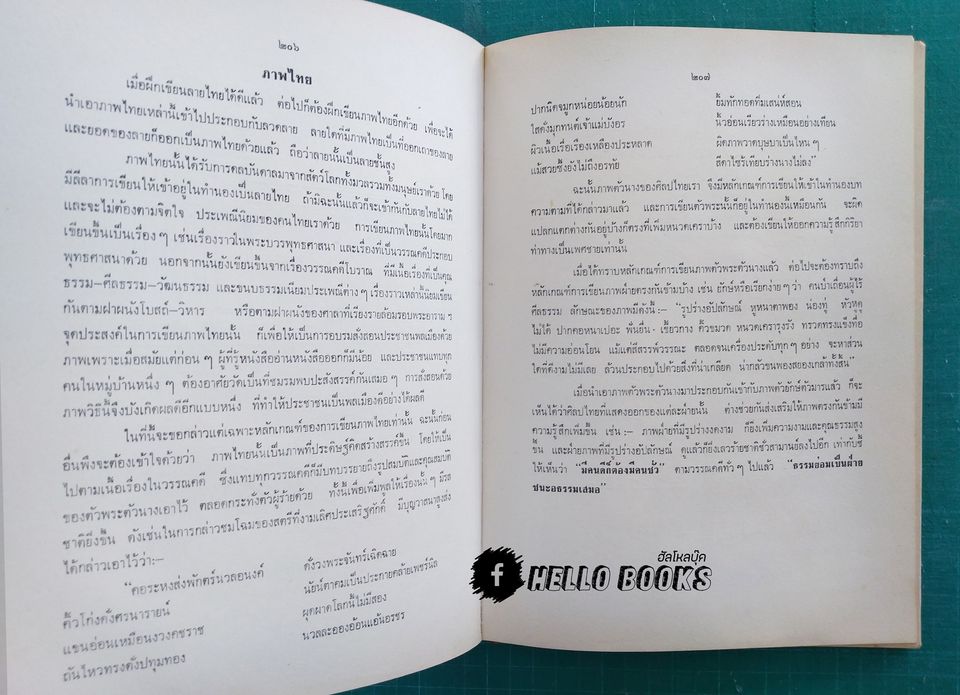 ๒๐๖
ภาพไทย
เมื่อฝึกเขียนลายไทยได้ดีแล้ว ต่อไปก็ต้องฝึกเขียนภาพไทยอีกด้วย เพื่อจะได้
นำเอาภาพไทยเหล่านี้เข้าไปประกอบกับลวดลาย ลายใดที่มีภาพไทยเป็นที่ออกเถาของลาย
และยอดของลายก็ออกเป็นภาพไทยด้วยแล้ว ถือว่าลายนั้นเป็นลายชั้นสูง
ภาพไทยนั้นได้รับการดลบันดาลมาจากสัตว์โลกทั้งมวลรวมทั้งมนุษย์เราด้วย โดย
มีลีลาการเขียนให้เข้าอยู่ในทำนองเป็นลายไทย ถ้ามิฉะนั้นแล้วก็จะเข้ากันกับลายไทยไม่ได้
และจะไม่ต้องตามจิตใจ ประเพณีนิยมของคนไทยเราด้วย การเขียนภาพไทยนั้นโดยมาก
เขียนขึ้นเป็นเรื่อง ๆ เช่นเรื่องราวในพระบวรพุทธศาสนา และเรื่องที่เป็นวรรณคดีประกอบ
พุทธศาสนาด้วย นอกจากนั้นยังเขียนขึ้นจากเรื่องวรรณคดีโบราณ ที่มีเนื้อเรื่องที่เป็นคุณ
ธรรม–ศีลธรรม–วัฒนธรรม และขนบธรรมเนียมประเพณีต่าง ๆ เรื่องราวเหล่านี้นิยมเขียน
กันตามฝาผนังโบสถ์–วิหาร หรือตามฝาผนังของศาลาที่เรียงรายล้อมรอบพระอาราม ฯ
จุดประสงค์ในการเขียนภาพไทยนั้น ก็เพื่อให้เป็นการอบรมสั่งสอนประชาชนพลเมืองด้วย
ภาพเพราะเมื่อสมัยแต่ก่อน ๆ ผู้ที่รู้หนังสืออ่านหนังสือออกก็มีน้อย และประชาชนแทบทุก
คนในหมู่บ้านหนึ่ง ๆ ต้องอาศัยวัดเป็นที่ชมรมพบปะสังสรรค์กันเสมอ ๆ การสั่งสอนด้วย
ภาพวิธีนี้จึงบังเกิดผลดีอีกแบบหนึ่ง ที่ทำให้ประชาชนเป็นพลเมืองดีอย่างได้ผลดี
ในที่นี้จะขอกล่าวแต่เฉพาะหลักเกณฑ์ของการเขียนภาพไทยเท่านั้น ฉะนั้นก่อน
อื่นพึงจะต้องเข้าใจด้วยว่า ภาพไทยนั้นเป็นภาพที่ประดิษฐ์คิดสร้างสรรค์ขึ้น โดยให้เป็น
ไปตามเนื้อเรื่องในวรรณคดี ซึ่งแทบทุกวรรณคดีก็มีบทบรรยายถึงรูปสมบัติและคุณสมบัติ
ของตัวพระตัวนางเอาไว้ ตลอดกระทั่งตัวผู้ร้ายด้วย ทั้งนี้เพื่อเพิ่มพูลให้เรื่องนั้น ๆ มีรส
ชาติยิ่งขึ้น ดังเช่นในการกล่าวชมโฉมของสตรีที่งามเลิศประเสริฐศักดิ์ มีบุญวาสนาสูงส่ง
ได้กล่าวเอาไว้ว่า:–
“คอระหงส่งพักตร์นวลอนงค์ ดั่งวงพระจันทร์เฉิดฉาย
คิ้วโก่งดั่งศรนารายน์ นัยน์ตาคมเป็นประกายคล้ายเพชรนิล
แขนอ่อนเหมือนงวงคชราช ผุดผาดโลกนี้ไม่มีสอง
ถันไหวทรงดังปทุมทอง นวลละอองอ้อนแอ้นอรชร
๒๐๗
ปากนิดจมูกหน่อยน้อยนัก ยิ้มทักทอดทีมเสน่ห์สอน
ใสดั่งมุกทนต์เจ้าแม่บังอร นิ้วอ่อนเรียวร่างเหมือนอย่างเทียน
ผิวเนื้อเรื่อเรืองเหลืองประหลาด ผิดภาพวาดบุษบาเป็นไหน ๆ
แม้สวยซึ้งยังไม่ถึงอรทัย สีดาไซร้เทียบร่างนางไม่ลง”
ฉะนั้นภาพตัวนางของศิลปไทยเรา จึงมีหลักเกณฑ์การเขียนให้เข้าในทำนองบท
ความตามที่ได้กล่าวมาแล้ว และการเขียนตัวพระนั้นก็อยู่ในทำนองนี้เหมือนกัน จะผิด
แปลกแตกต่างกันอยู่บ้างก็ตรงที่เพิ่มหนวดเคราบ้าง และต้องเขียนให้ออกความรู้สึกกิริยา
ท่าทางเป็นเพศชายเท่านั้น
เมื่อได้ทราบหลักเกณฑ์การเขียนภาพตัวพระตัวนางแล้ว ต่อไปจะต้องทราบถึง
หลักเกณฑ์การเขียนภาพฝ่ายตรงกันข้ามบ้าง เช่น ยักษ์หรือเรียกง่าย ๆ ว่า คนป่าเถื่อนผู้ไร้
ศีลธรรม ลักษณะของภาพมีดังนี้:– “รูปร่างอัปลักษณ์ หูหนาตาพอง น่องทู่ หัวหูดู
ไม่ได้ ปากคอหนาเปอะ ฟันยื่น–เขี้ยวกาง คิ้วขมวด หนวดเครารุงรัง ทรวดทรงแข็งทื่อ
ไม่มีความอ่อนโยน แม้แต่สีสรรพ์วรรณะ ตลอดจนเครื่องประดับทุก ๆ อย่าง จะหาส่วน
ใดที่ดีงามไม่มีเลย ล้วนประกอบไปด้วยสิ่งที่น่าเกลียด น่ากลัวขนพองสยองเกล้าทั้งสิ้น”
เมื่อนำเอาภาพตัวพระตัวนางมาประกอบกันเข้ากับภาพตัวยักษ์ตัวมารแล้ว ก็จะ
เห็นได้ว่าศิลปไทยที่แสดงออกของแต่ละฝ่ายนั้น ต่างช่วยกันส่งเสริมให้ภาพตรงกันข้ามมี
ความรู้สึกเพิ่มขึ้น เช่น:– ภาพฝ่ายที่มีรูปร่างงดงาม ก็ยิ่งเพิ่มความงามและคุณธรรมสูง
ขึ้น และฝ่ายภาพที่มีรูปร่างอัปลักษณ์ ดูแล้วก็ยิ่งเลวร้ายชาติชั่วสามานย์ลงไปอีก เท่ากับชี้
ให้เห็นว่า “มีคนดีก็ต้องมีคนชั่ว” ตามวรรณคดีทั่ว ๆ ไปแล้ว “ธรรมย่อมเป็นฝ่าย
ชนะอธรรมเสมอ”
ฮัลโหลบุ๊ค
f HELLO BOOKS